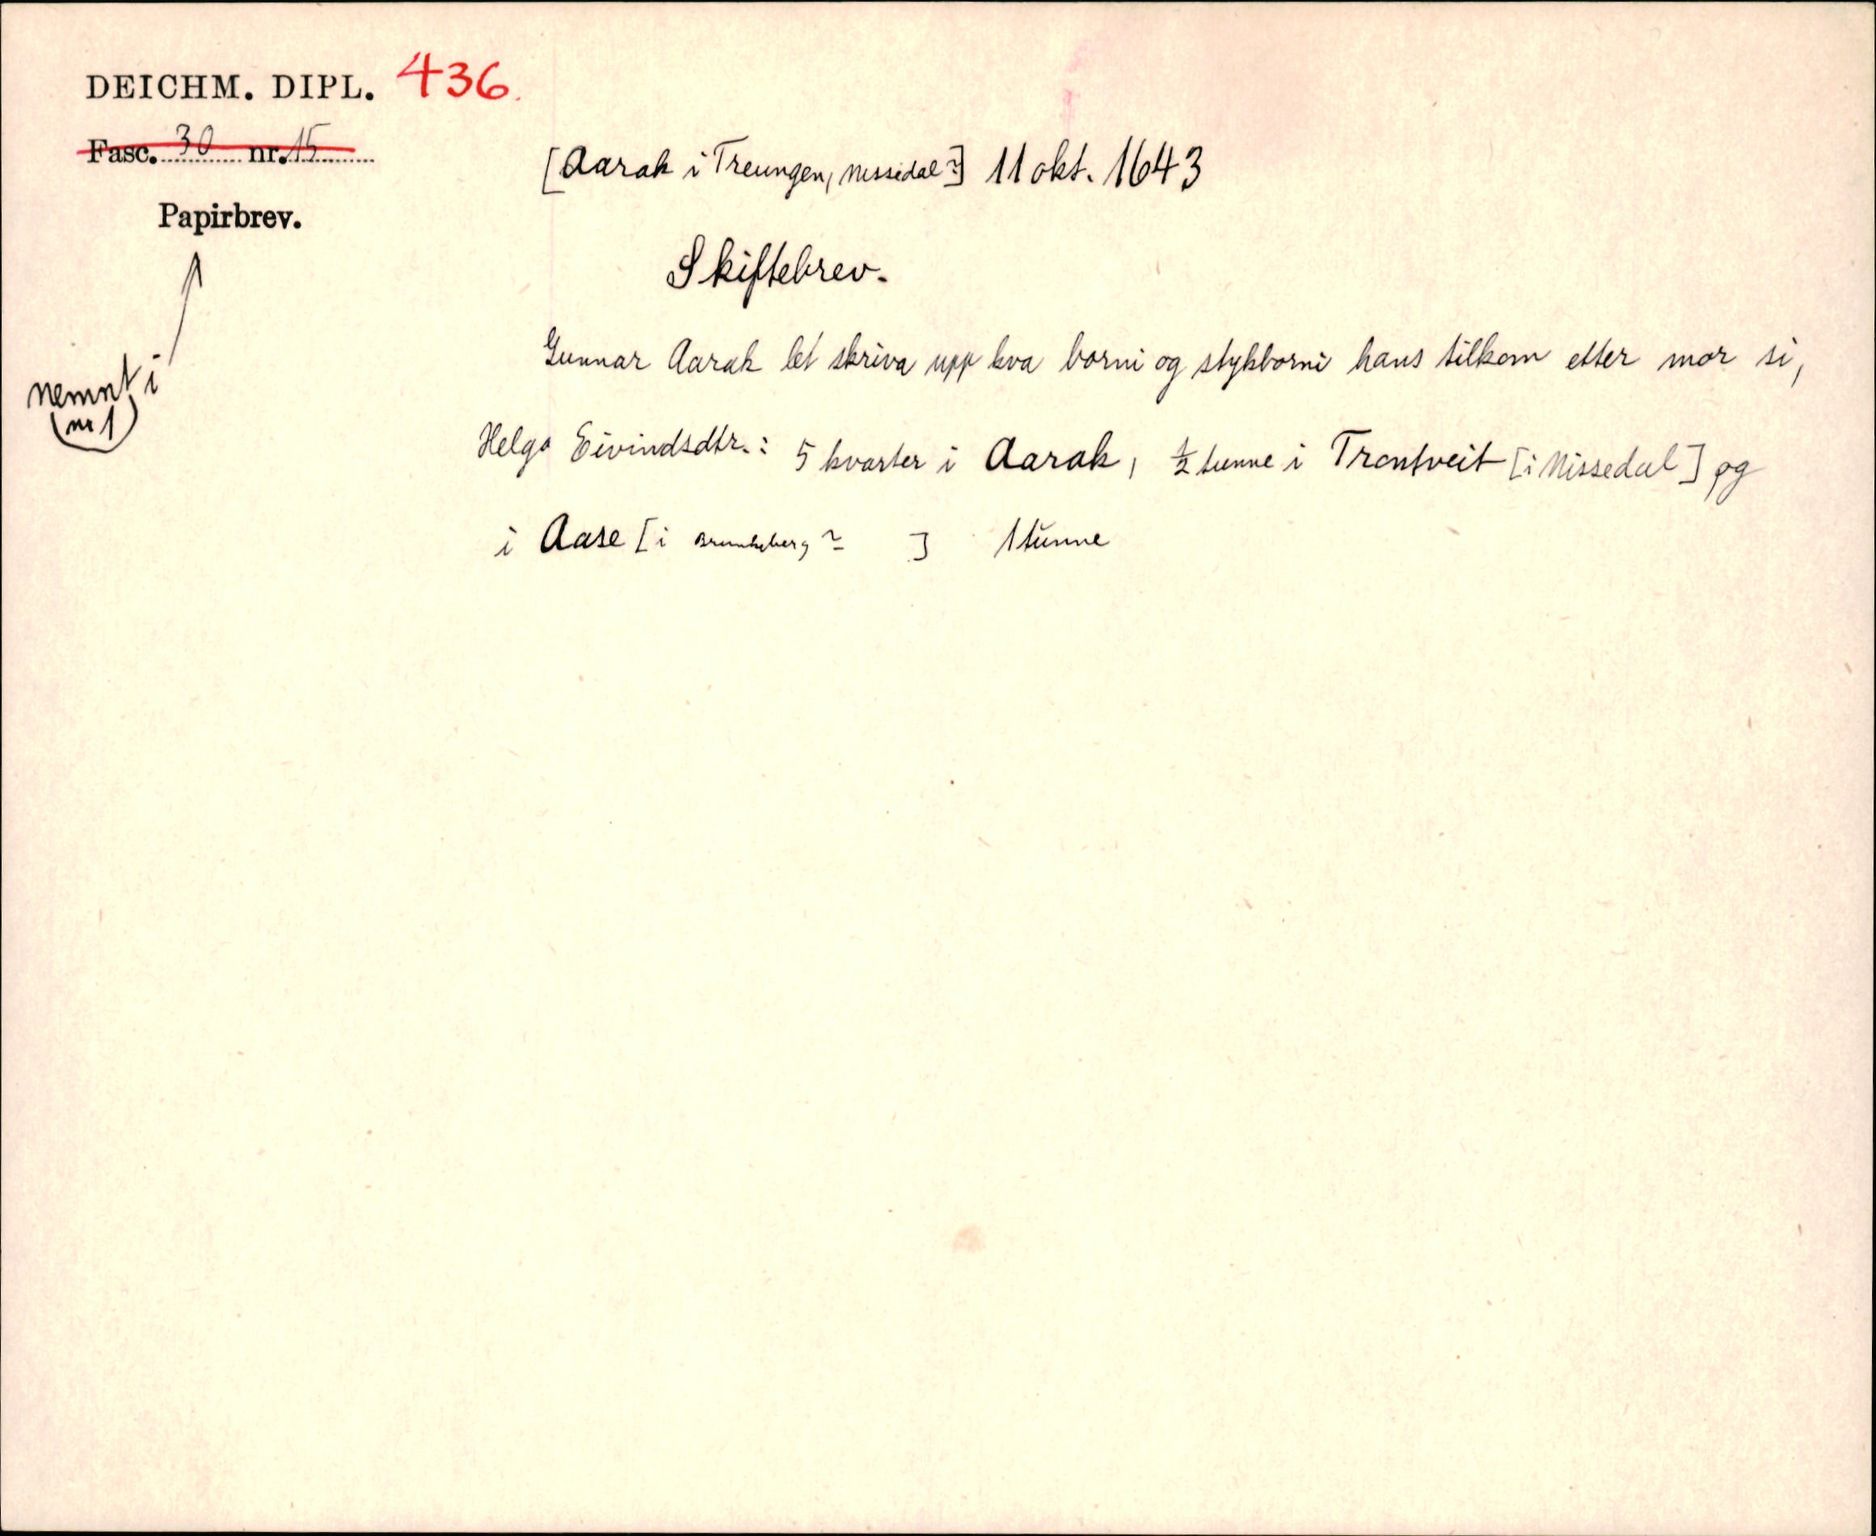 DEICHM. DIPL. 436.
Fasc. 30 nr. 15
Papirbrev.
nemnt i
(nr 1)
[Aarak i Treungen, Nissedal?] 11 okt. 1643
Skiftebrev.
Gunnar Aarak let skriva upp kva borni og stykborni hans tilkom etter mor si,
Helga Eivindsdtr.: 5 kvarter i Aarak, ½ tunne i Trontveit [i Nissedal] og
i Aase [i Brunkeberg ? ] 1 tunne